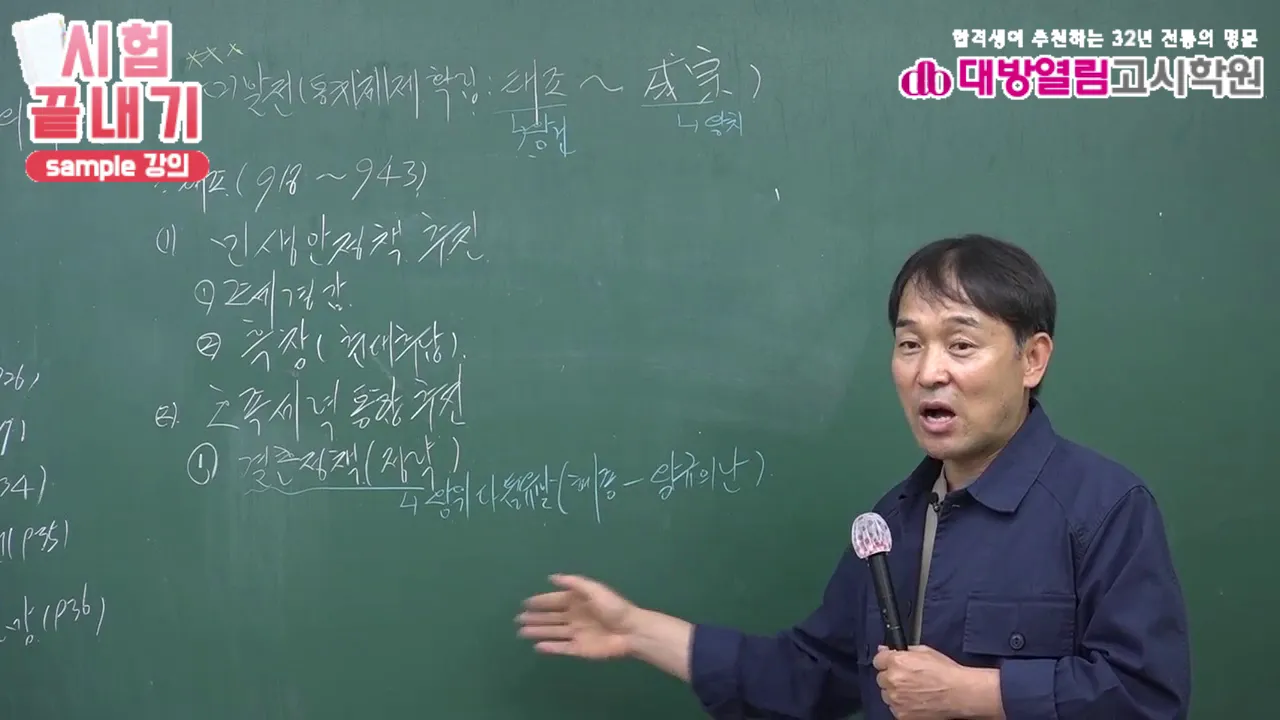 시험
끝내기
sample 강의
합격생이 추천하는 32년 전통의 명문
대방열림고시학원
발전(통치체제 확립: 태조 ~ 成宗)
↳왕건
↳왕치
태조(918 ~ 943)
(1) 민생안정책 추진.
① 조세경감
② 흑창(춘대추납).
(2). 호족세력 통합 추진
① 결혼정책(정략)
↳ 왕위 다툼유발(혜종 - 왕규의 난).
p26)
34)
p35)
(p36)